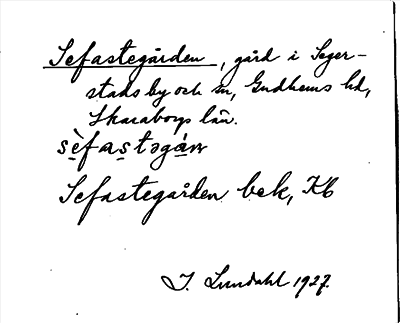 Sefastegården, gård i Seger-
stads by och sn, Gudhems hd,
Skaraborgs län.
sèfastəgán
Sefastegården bek, Kb
I. Lundahl 1927.